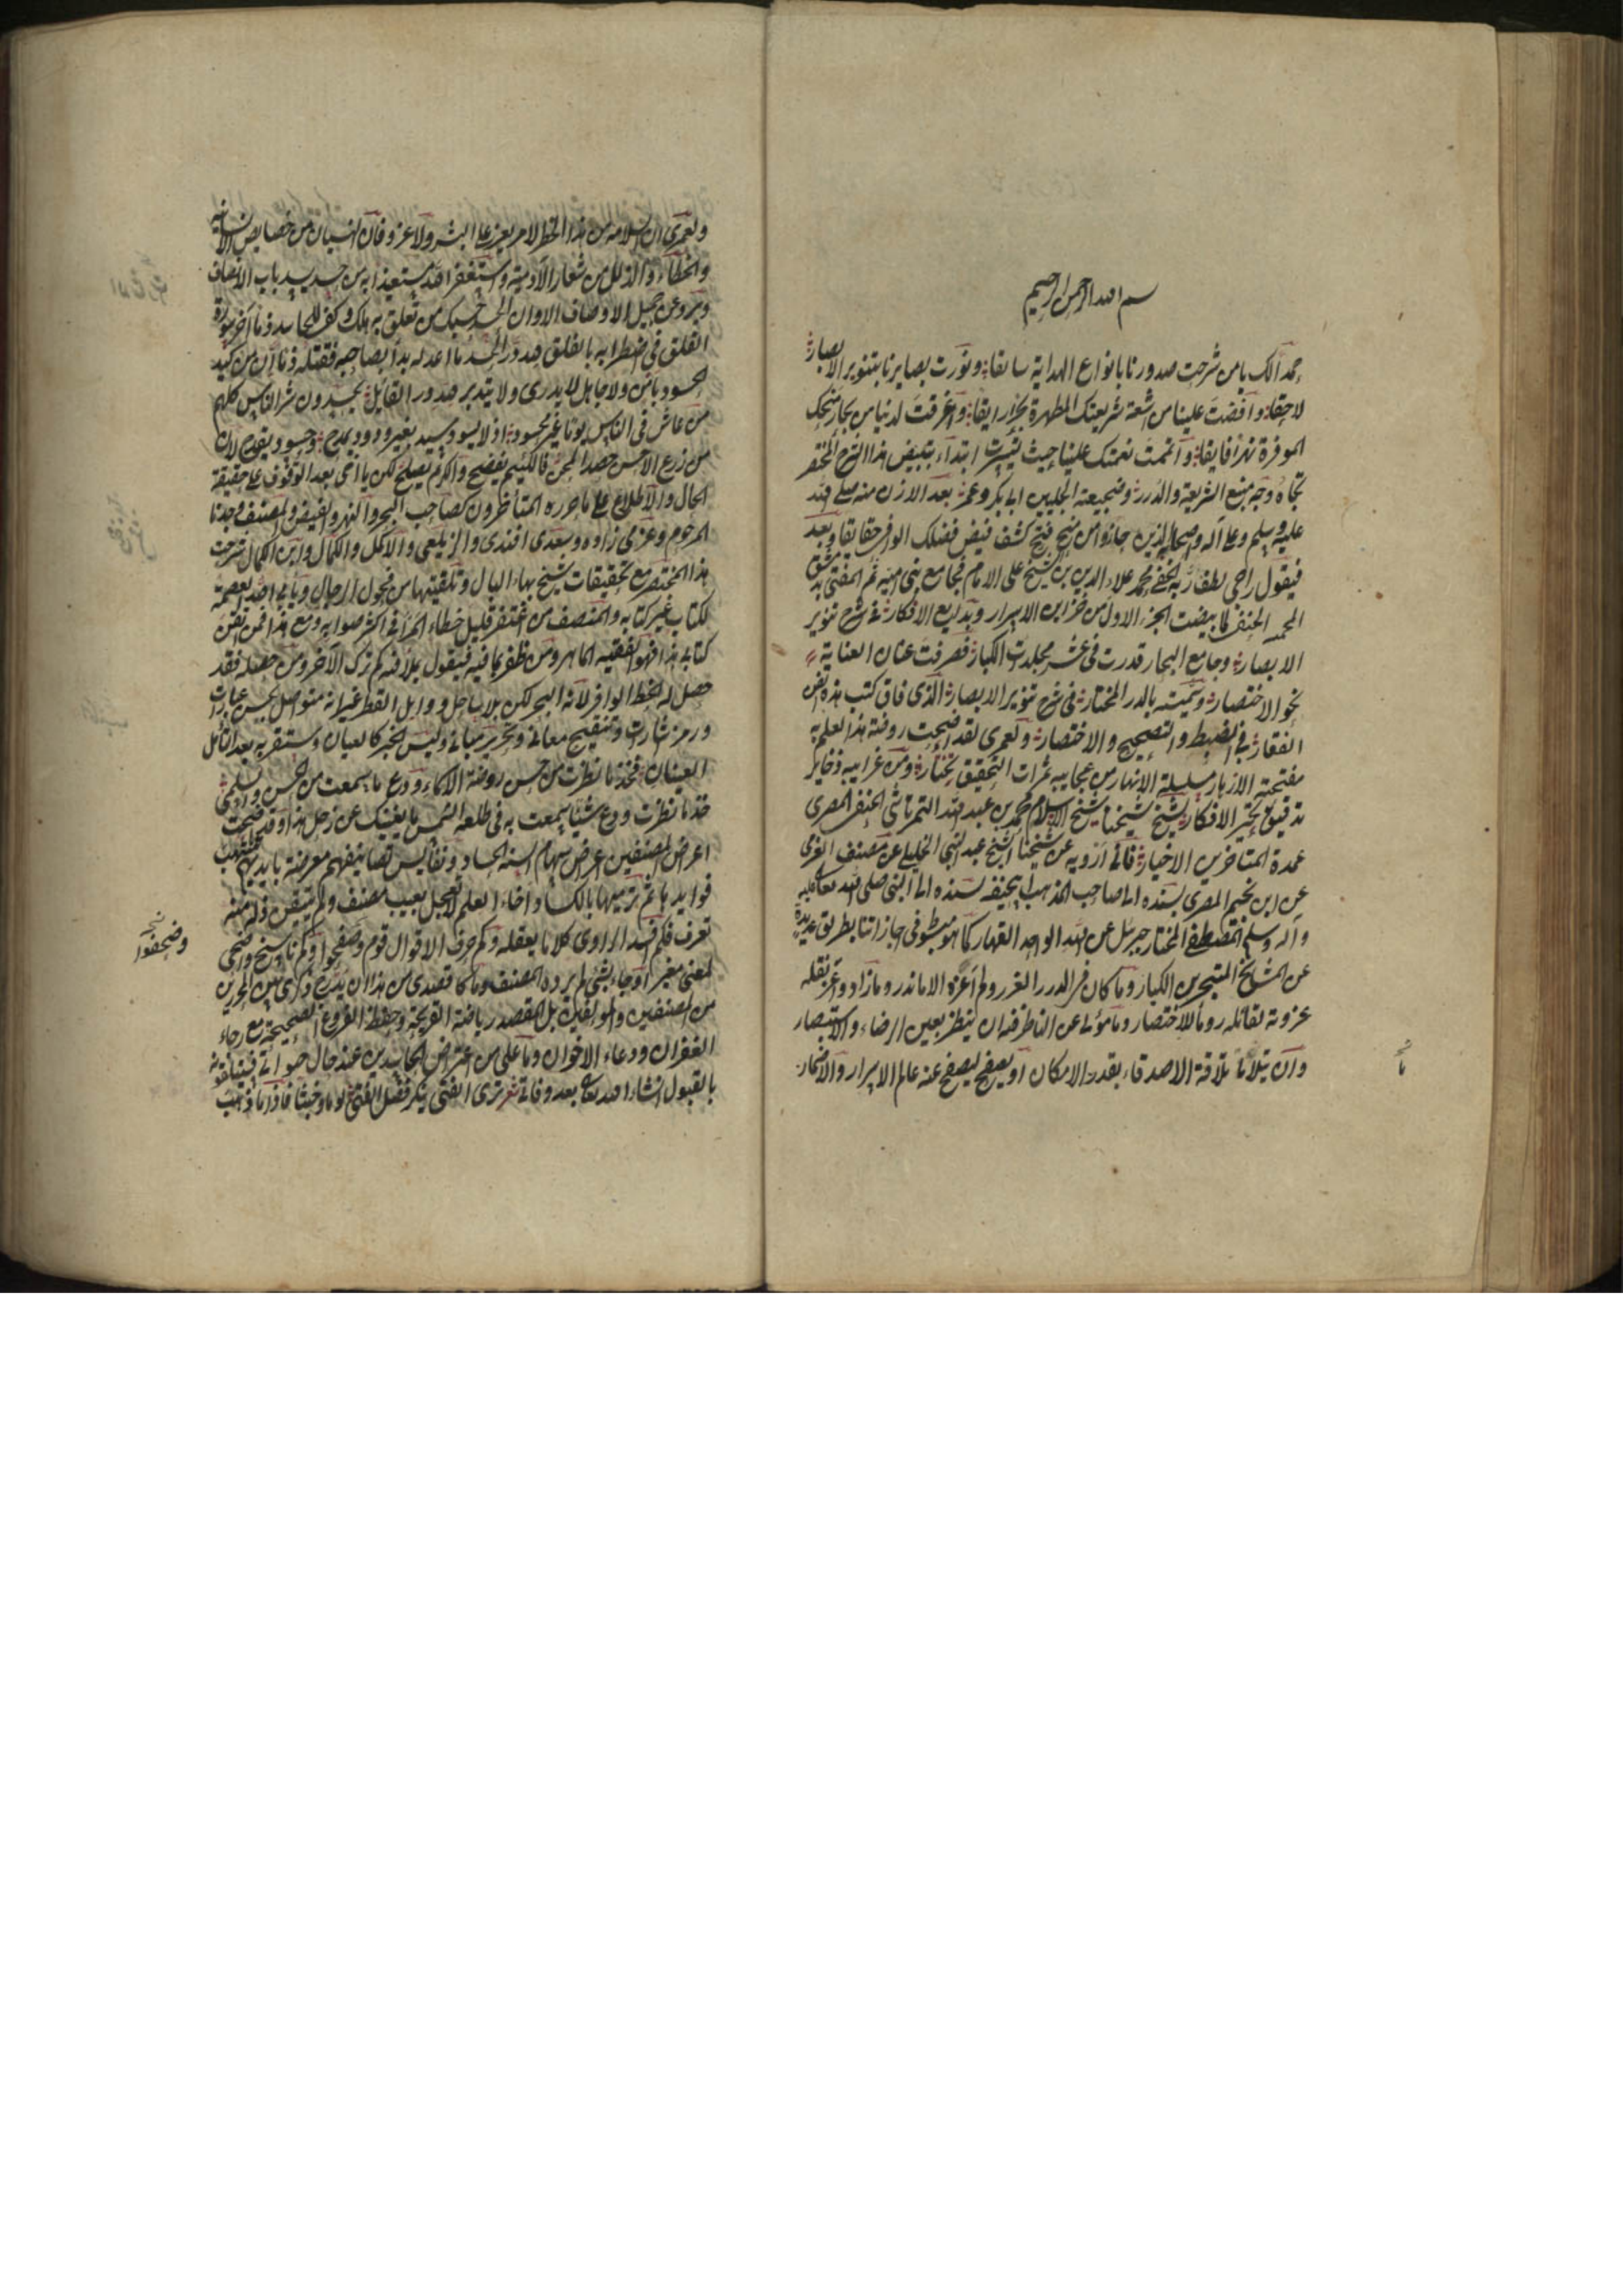 بسم الله الرحمن الرحيم
حمدا لك يا من شرحت صدورنا بانواع الهداية سابقا ونورت بصايرنا بتنوير الابصار
لاحقا وافضت علينا من اشعة شريعتك المطهرة بحرا رايقا واغرقت لدينا من بحار منحك
الموفرة نهرا فايقا واتممت نعمتك علينا حيث يسرت ابتداء تبييض هذا الشرح المختصر
تجاه وجه منبع الشريعة والدرر وضجيعيه الجليلين ابي بكر وعمر بعد الاذن منه صلى الله
عليه وسلم وعلى آله وصحابه الذين حازوا من منح فتح كشف فيض فضلك الوافر حقايقا وبعد
فيقول راجي لطف ربه الخفي محمد علاء الدين بن الشيخ علي الامام بجامع بني امية ثم المفتي بدمشق
المحمية الحنفي لما بيضت الجزء الاول من خزاين الاسرار وبدايع الافكار في شرح تنوير
الابصار وجامع البحار قدرته في عشر مجلدات الكبار فصرفت عنان العناية
نحو الاختصار وسميته بالدر المختار في شرح تنوير الابصار الذي فاق كتب هذا الفن
في الضبط والتصحيح والاختصار ولعمري لقد اضحت روضة هذا العلم به
مفتحة الازهار مسلسلة الانهار من عجايبه ثمرات التحقيق تختار ومن غرايبه ذخاير
تدقيق تحير الافكار لشيخ شيخنا شيخ الاسلام محمد بن عبد الله التمرتاشي الحنفي المصري
عمدة المتاخرين الاخيار فاني ارويه عن شيخنا الشيخ عبد النبي الخليلي عن مصنفه الغزي
عن ابن نجيم المصري بسنده الى صاحب المذهب ابي حنيفة بسنده الى النبي صلى الله تعالى عليه
وآله وسلم المصطفى المختار عن جبريل عن الله الواحد القهار كما هو مبسوط في اجازاتنا بطريق عديدة
عن المشايخ المتبحرين الكبار وما كان في الدرر الغرر ولم اعزه الا ما ندر وما زاد وعز نقله
عزوته لقائله روما للاختصار ومامولي عن الناظر فيه ان ينظر بعين الرضاء والاستبصار
وان يتلافى تلافه الاصدقاء بقدر الامكان او يصفح ليصفح عنه عالم الاسرار والاضمار
ولعمري ان السلامة من هذا الخطر لامر يعز على البشر ولا غرو فان النسيان من خصايص الانسانية
والخطاء والزلل من شعار الآدمية واستغفر الله مستعيذا به من حسد يسد باب الانصاف
ويرد عن جميل الاوصاف الا وان الحسد حسك من تعلق به هلك وكفى للحاسد ذما آخر سورة
الفلق في اضطرابه بالقلق لله در الحسد ما اعدله بدأ بصاحبه فقتله وما انا من كيد
الحسود بآمن ولا جاهل لا يدري ولا يتدبر ولله در القائل يحسدون شر الناس كلهم
من عاش في الناس يوما غير محسود اذ لا يسود سيد بغير ودود يمدح وحسود يقدح لان
من زرع الاحن حصد المحن فاللئيم يفضح والكريم يصلح لكن يا اخي بعد الوقوف على حقيقة
الحال والاطلاع على ما حرره المتأخرون كصاحب البحر والنهر والفيض والمصنف وجدنا
المرحوم وعزمي زاده وسعدي افندي والزيلعي والاكمل والكمال وابن الكمال شرحت
هذا المختصر مع تحقيقات شيخ بهاء البال وتلقيتها من فحول الرجال ويأبى الله العصمة
لكتاب غير كتابه والمنصف من اغتفر قليل خطاء المرء في اكثر صوابه ومع هذا فمن اتقن
كتابي هذا فهو الفقيه الماهر ومن ظفر بما فيه فيقول بملأ فيه كم ترك الاول للآخر ومن حصله فقد
حصل له الحظ الوافر لانه البحر لكن بلا ساحل ووابل القطر غير انه متواصل بحسن عبارات
ورمز اشارات وتنقيح معاني وتحرير مباني وليس الخبر كالعيان وستقر به بعد التأمل
العينان فخذ ما نظرت من حسن روضه الاسماء ودع ما سمعت من الحسن وسلمى
خذ ما نظرت ودع شيئا سمعت به في طلعة الشمس ما يغنيك عن زحل هذا وقد اضحت
اعراض المصنفين اعراض سهام السنة الحساد ونفائس تصانيفهم معرضة بايديهم تنتهب
فوايدها ثم ترميها بالكساد اخا العلم لا تعجل بعيب مصنف ولم تتيقن زلة منه
تعرف فكم افسد الراوي كلاما بعقله وكم حرف الاقوال قوم وصحفوا وكم ناسخ اضحى
لمعنى مغير او جاء بشيء لم يرده المصنف وما كان قصدي من هذا ان يدرج ذكري بين المحررين
من المصنفين والمؤلفين بل القصد رياضة القريحة وحفظ الفروع الصحيحة مع رجاء
الغفران ودعاء الاخوان وما علي من اعتراض الحاسدين عنه حال حياتي فسيتلقونه
بالقبول انشاء الله تعالى بعد وفاتي شعر ترى الفتى ينكر فضل الفتى لوما وخبثا فاذا ما ذهب
وصحفوا